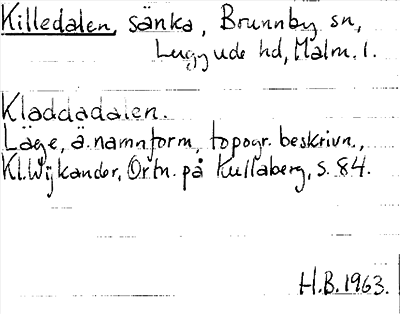 Killedalen, sänka, Brunnby sn,
Luggude hd, Malm. l.
Kladdadalen.
Läge, ä. namnform, topogr. beskrivn.,
Kl. Wijkander, Ortn. på Kullaberg, s. 84.
H.B. 1963.